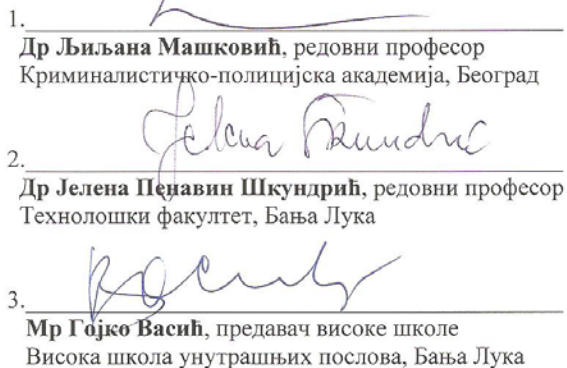 1.
Др Љиљана Машковић, редовни професор
Криминалистичко-полицијска академија, Београд
Јелена Шкундрић
2.
Др Јелена Пенавин Шкундрић, редовни професор
Технолошки факултет, Бања Лука
3.
Мр Гојко Васић, предавач високе школе
Висока школа унутрашњих послова, Бања Лука